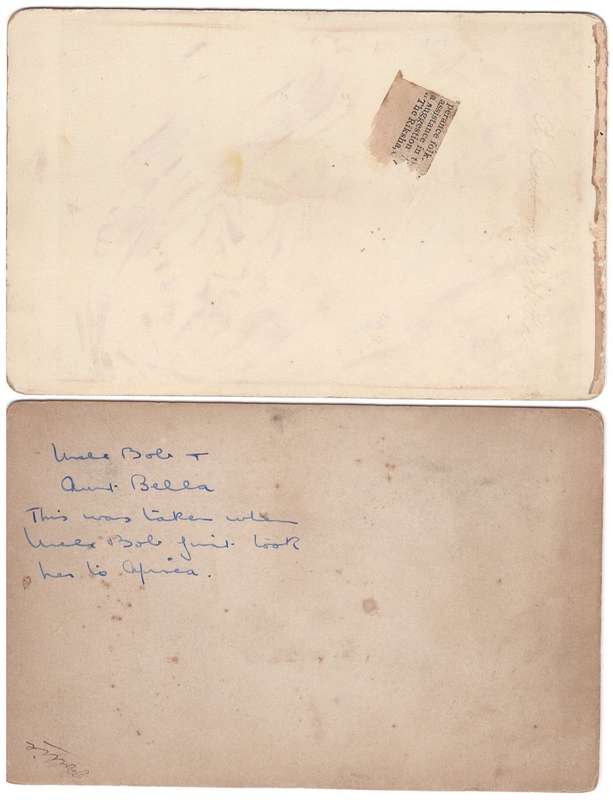 perance folk.
assistance in t
a suggestion
"The Riksha,
Uncle Bob +
Aunt Bella
This was taken when
Uncle Bob first took
her to Africa.